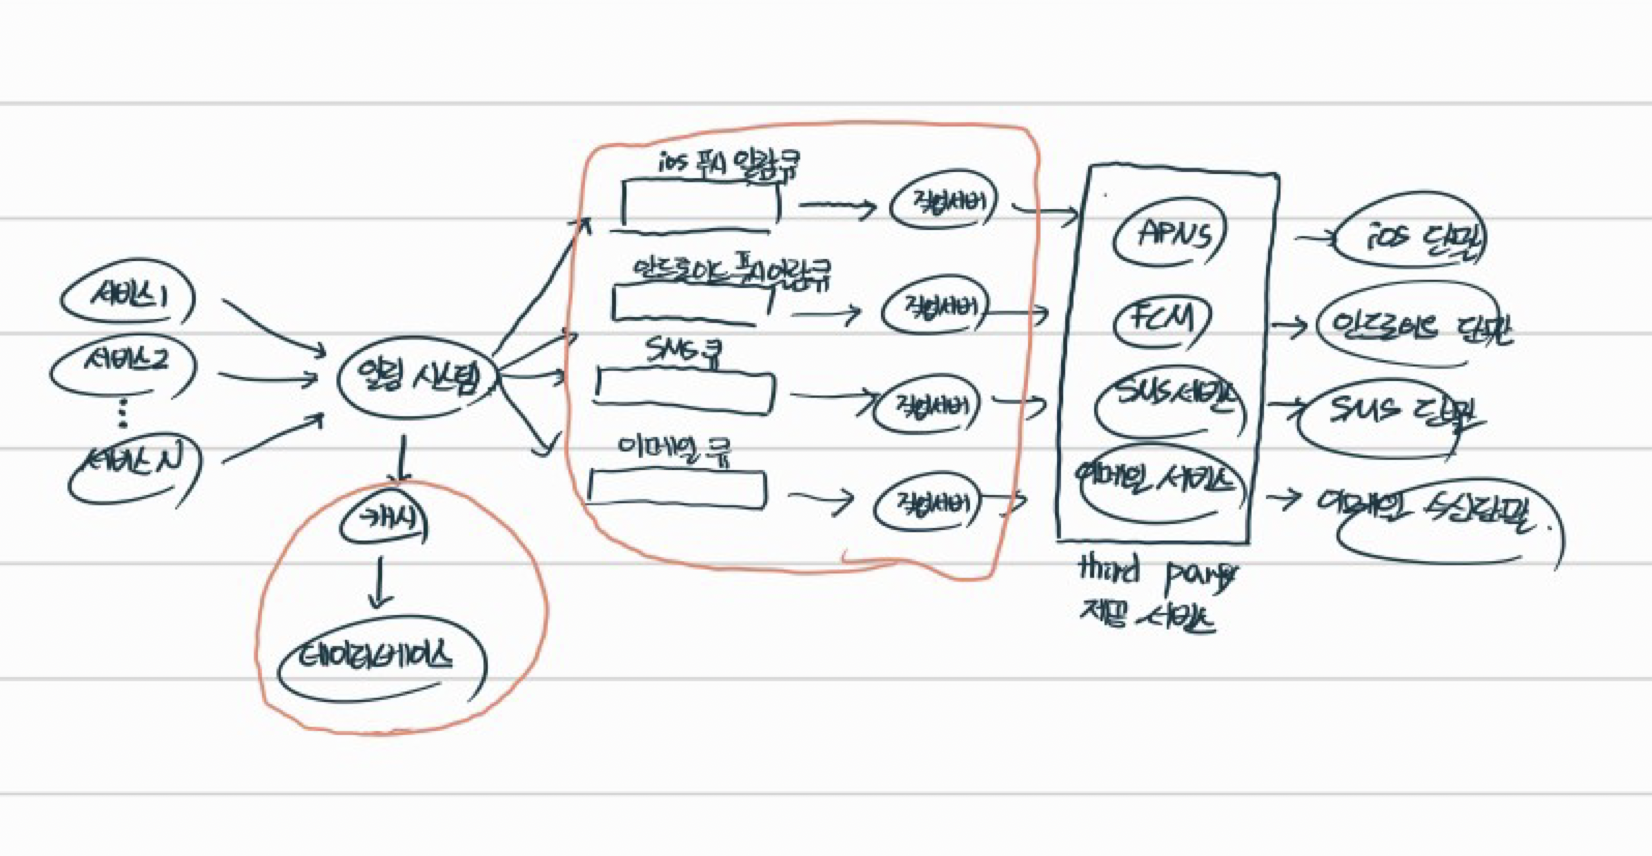 서비스1
서비스2
서비스N
알림 시스템
캐시
데이터베이스
ios 푸시 알람큐
작업서버
안드로이드 푸시알람큐
작업서버
SMS 큐
작업서버
이메일 큐
작업서버
APNS
FCM
SMS 서비스
이메일 서비스
third party
제공 서비스
iOS 단말
안드로이드 단말
SMS 단말
이메일 수신단말